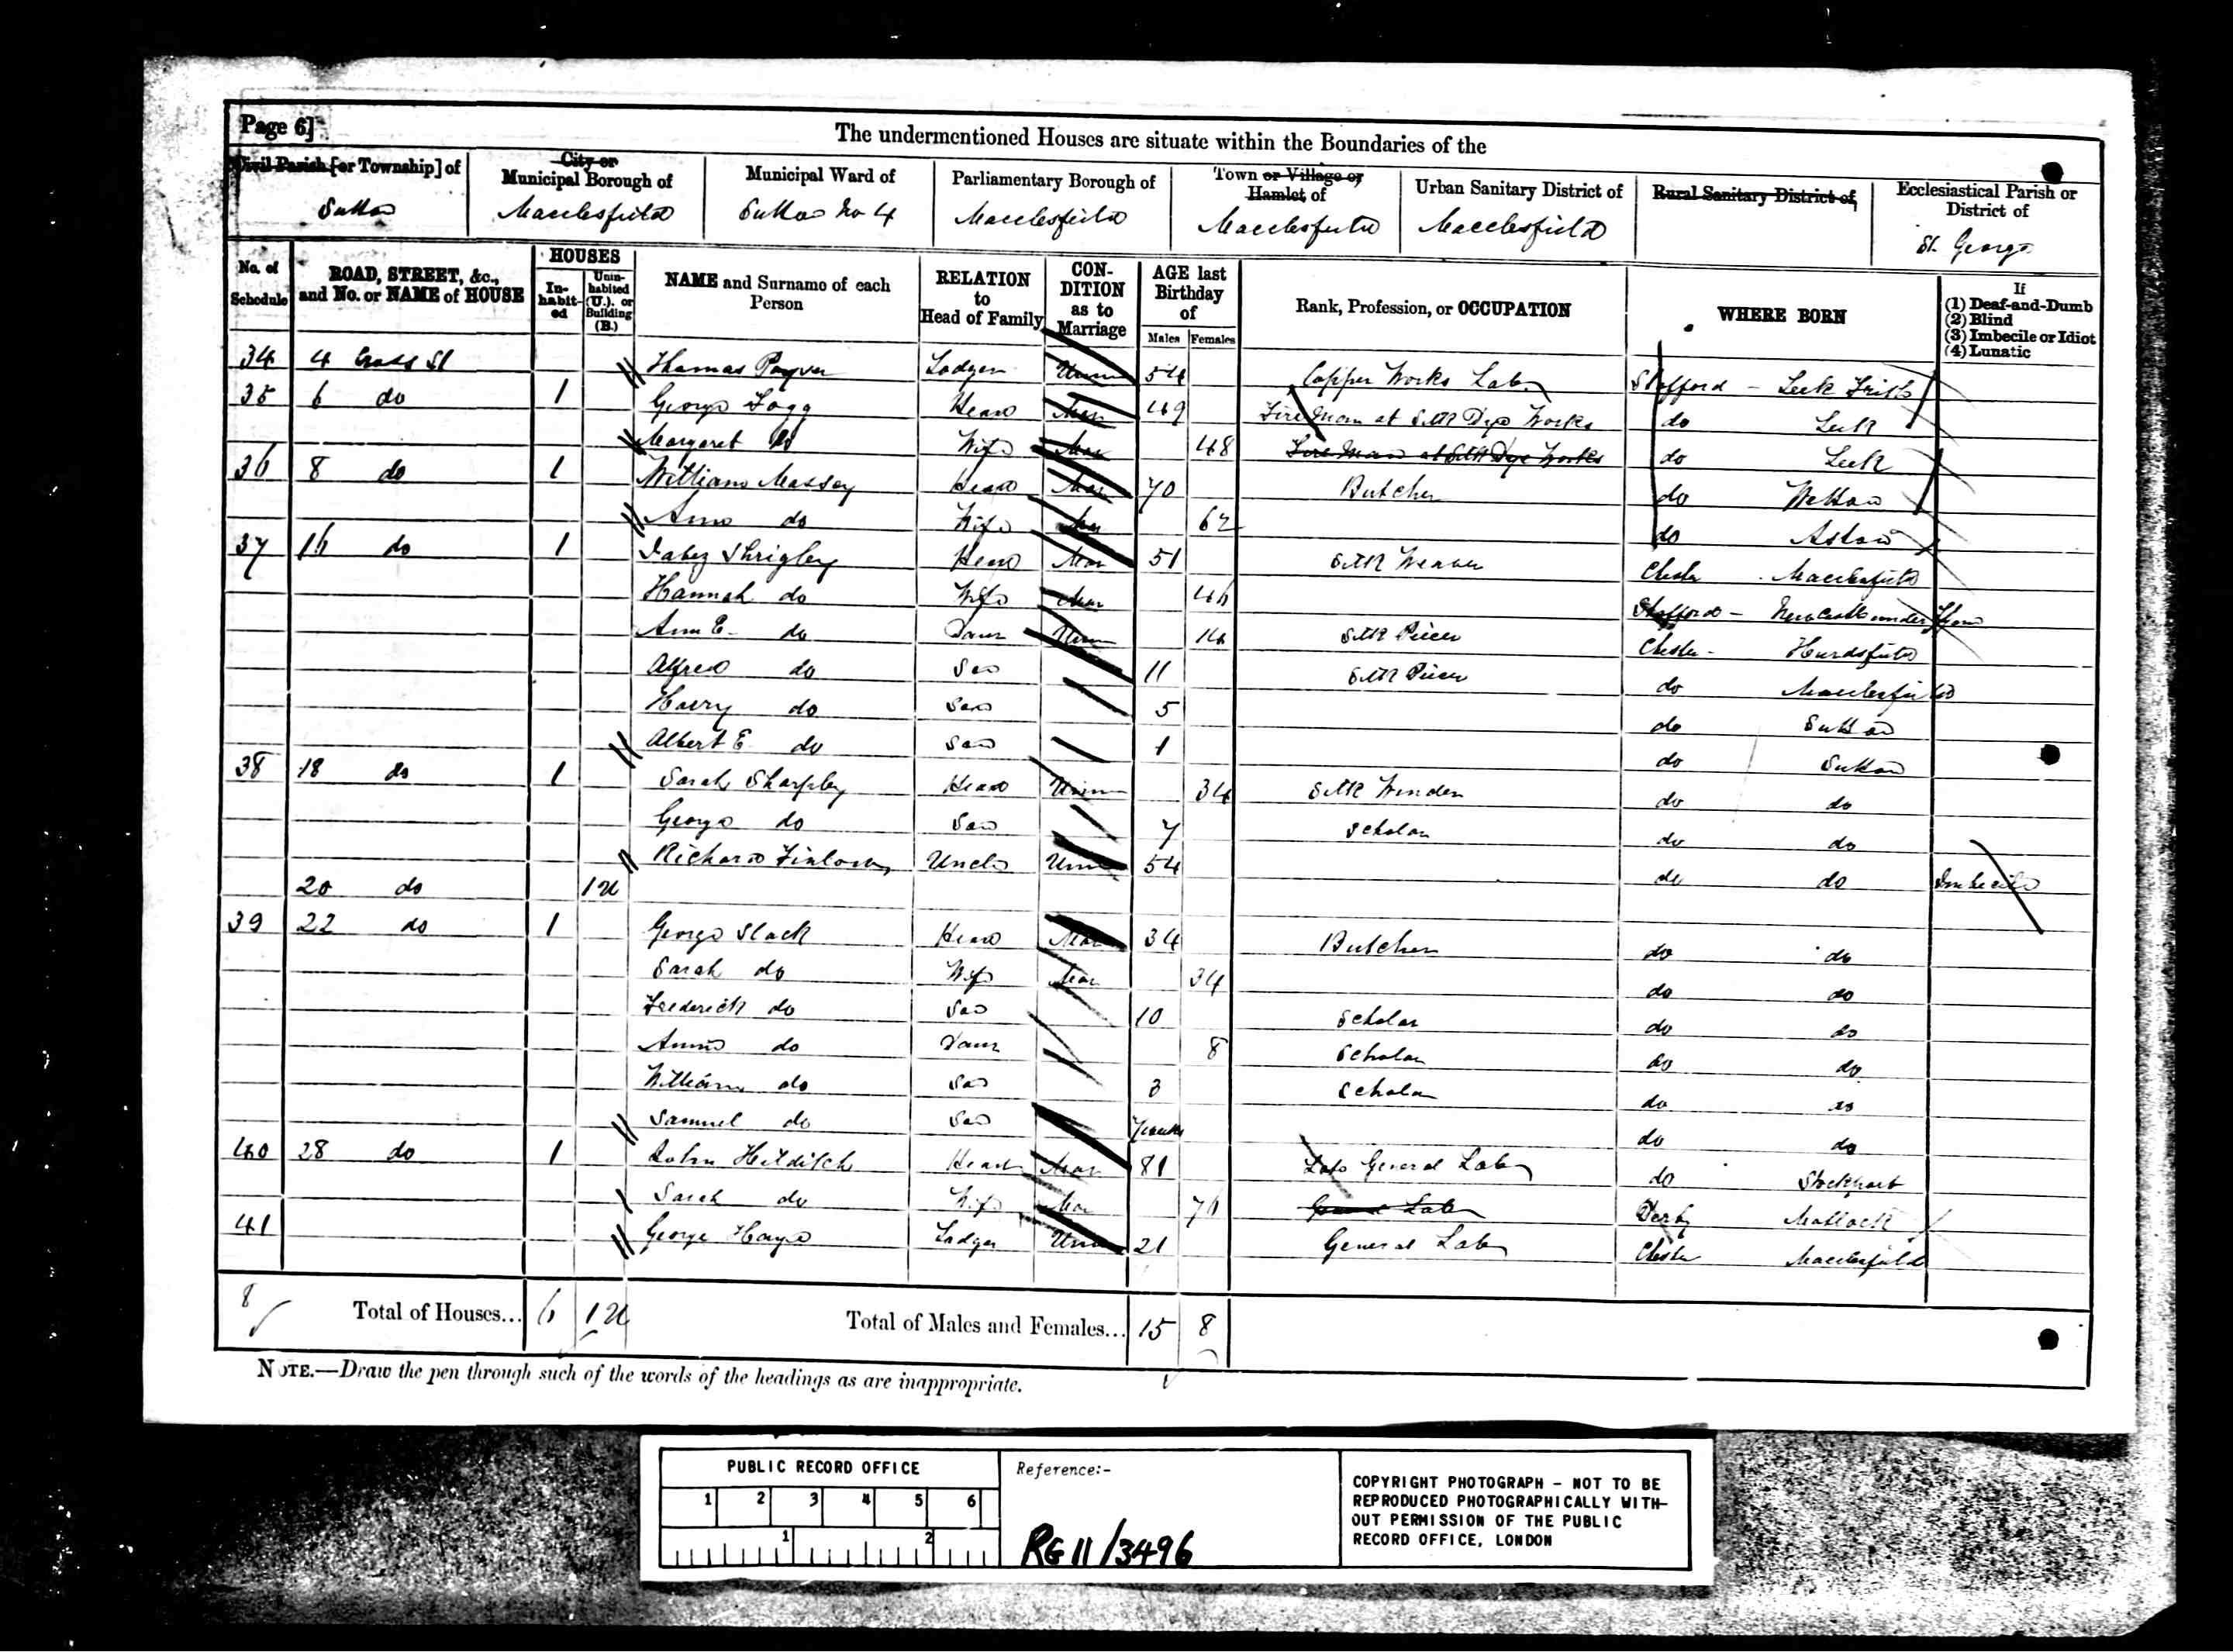 Page 6]
The undermentioned Houses are situate within the Boundaries of the
Civil Parish [or Township] of
Sutton
City or Municipal Borough of
Macclesfield
Municipal Ward of
Sutton No 4
Parliamentary Borough of
Macclesfield
Town or Village or Hamlet of
Macclesfield
Urban Sanitary District of
Macclesfield
Rural Sanitary District of
Ecclesiastical Parish or District of
St. George
No. of Schedule
ROAD, STREET, &c., and No. or NAME of HOUSE
HOUSES
Inhabited
Uninhabited (U.), or Building (B.)
NAME and Surname of each Person
RELATION to Head of Family
CONDITION as to Marriage
AGE last Birthday of
Males Females
Rank, Profession, or OCCUPATION
WHERE BORN
If
(1) Deaf-and-Dumb
(2) Blind
(3) Imbecile or Idiot
(4) Lunatic
34 4 Cross St Thomas Lodger Unm 54 Copper Works Lab Stafford - Leek Frith
35 6 do 1 George Fogg Head Mar 49 Fireman at Silk Dye Works do Leek
Margaret do Wife Mar 48 Fire Man at Silk Dye Works do Leek
36 8 do 1 William Massey Head Mar 70 Butcher do Wetton
Ann do Wife Mar 62 do Aston
37 16 do 1 Jabez Shrigley Head Mar 51 Silk Weaver Chester Macclesfield
Hannah do Wife Mar 46 Stafford - Newcastle under Lyme
Ann E. do Daur Unm 14 Silk Piecer Chester - Hurdsfield
Alfred do Son 11 Silk Piecer do Macclesfield
Harry do Son 5 do Sutton
Albert E. do Son 1 do Sutton
38 18 do 1 Sarah Sharpley Head Unm 34 Silk Winder do do
George do Son 7 Scholar do do
Richard Finlow Uncle Unm 54 do do Imbecile
20 do 1 U
39 22 do 1 George Slack Head Mar 34 Butcher do do
Sarah do Wife Mar 34 do do
Frederick do Son 10 Scholar do do
Annie do Daur 8 Scholar do do
William do Son 3 Scholar do do
Samuel do Son 7 weeks do do
40 28 do 1 John Hilditch Head Mar 81 Late General Lab do Stockport
Sarah do Wife Mar 76 General Lab Derby Matlock
41 George Lodger Unm 21 General Lab Chester Macclesfield
8 Total of Houses... 6 1 U Total of Males and Females... 15 8
NOTE.—Draw the pen through such of the words of the headings as are inappropriate.
PUBLIC RECORD OFFICE
1 2 3 4 5 6
1 2
Reference:-
RG 11/3496
COPYRIGHT PHOTOGRAPH - NOT TO BE
REPRODUCED PHOTOGRAPHICALLY WITH-
OUT PERMISSION OF THE PUBLIC
RECORD OFFICE, LONDON